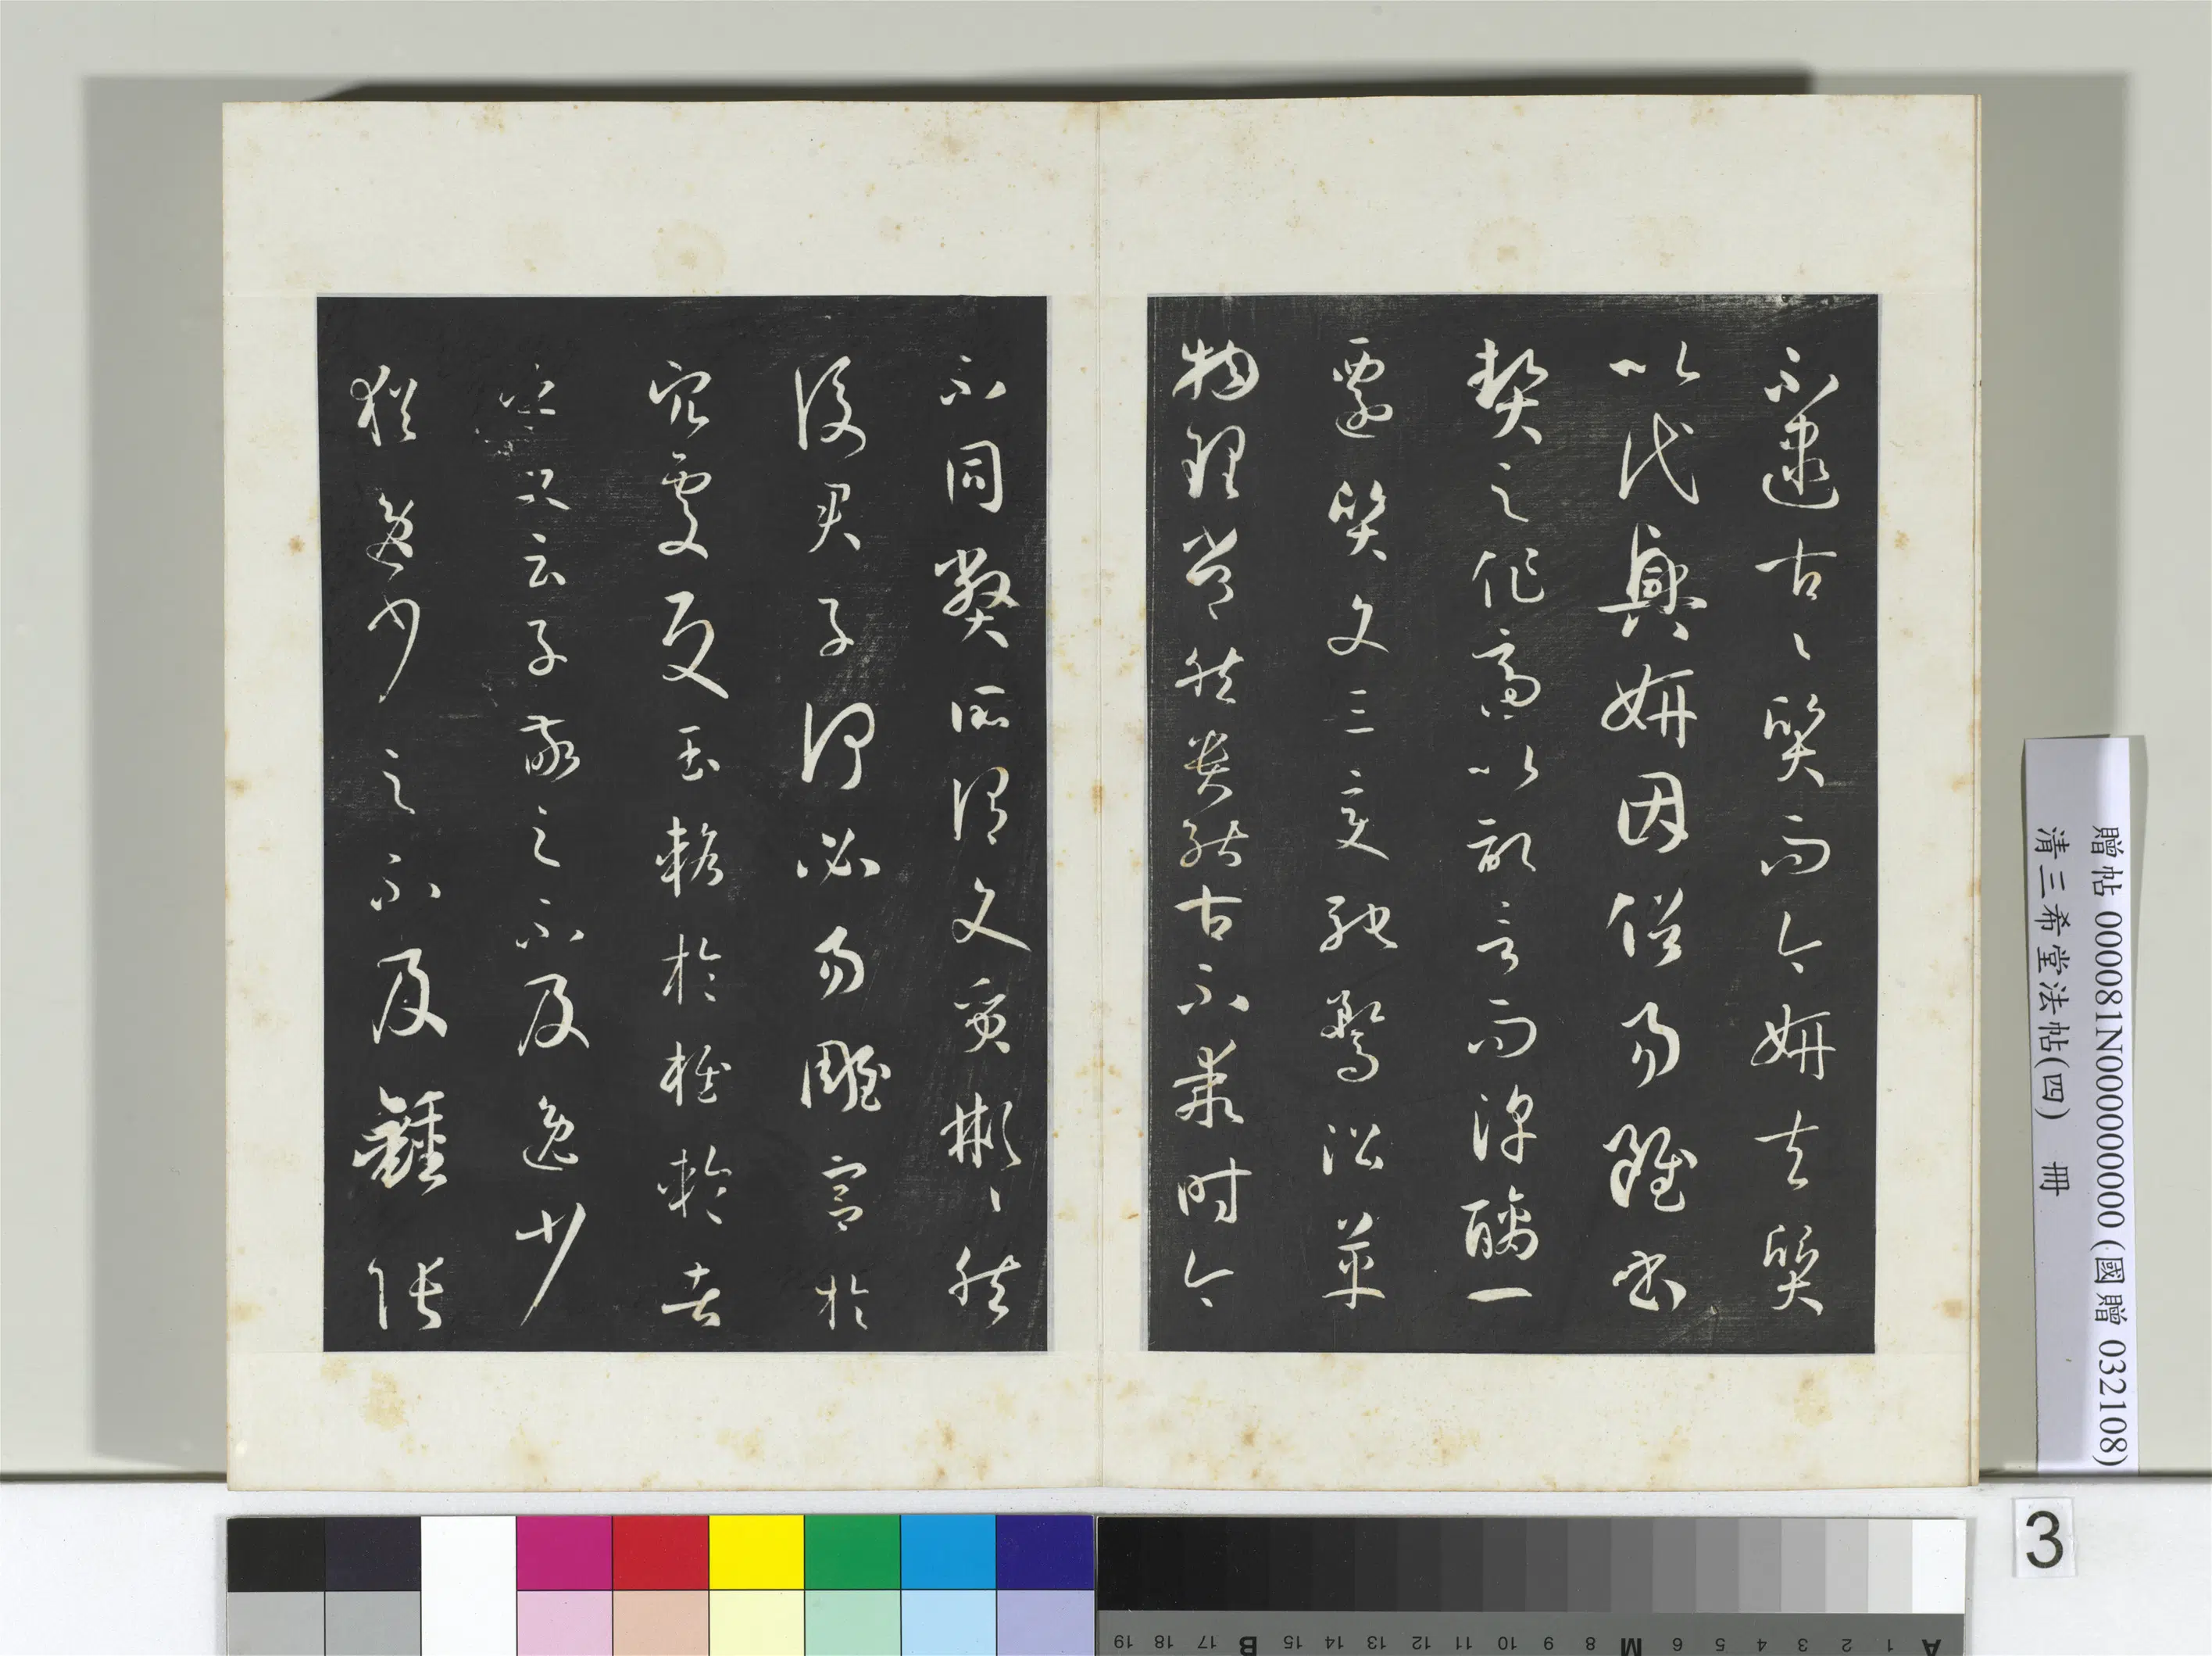 不逮古々質而今妍夫質
以代興妍因俗易雖書
契之作適以記言而淳醨一
遷質文三變馳騖沿革
物理常然貴能古不乖時今
不同弊所謂文質彬々然
後君子何必易雕宮於
穴處反玉輅於椎輪者
乎又云子敬之不及逸少
猶逸少之不及鍾張
贈帖 000081N000000000 (國贈 032108)
清三希堂法帖(四) 冊
3
A 1 2 3 4 5 6 M 8 9 10 11 12 13 14 15 B 17 18 19